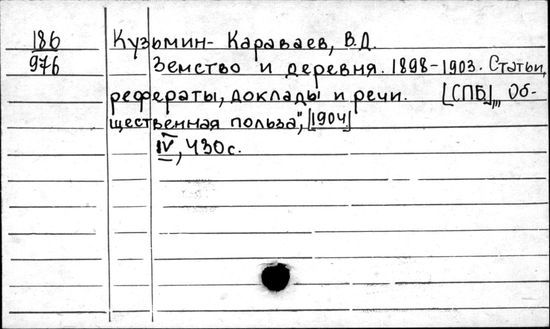 186
976
Кузьмин-Караваев, В.Д.
Земство и деревня. 1898-1903. Статьи,
рефераты, доклады и речи. [СПБ], „Об-
щественная польза", [1904]
IV, 430с.